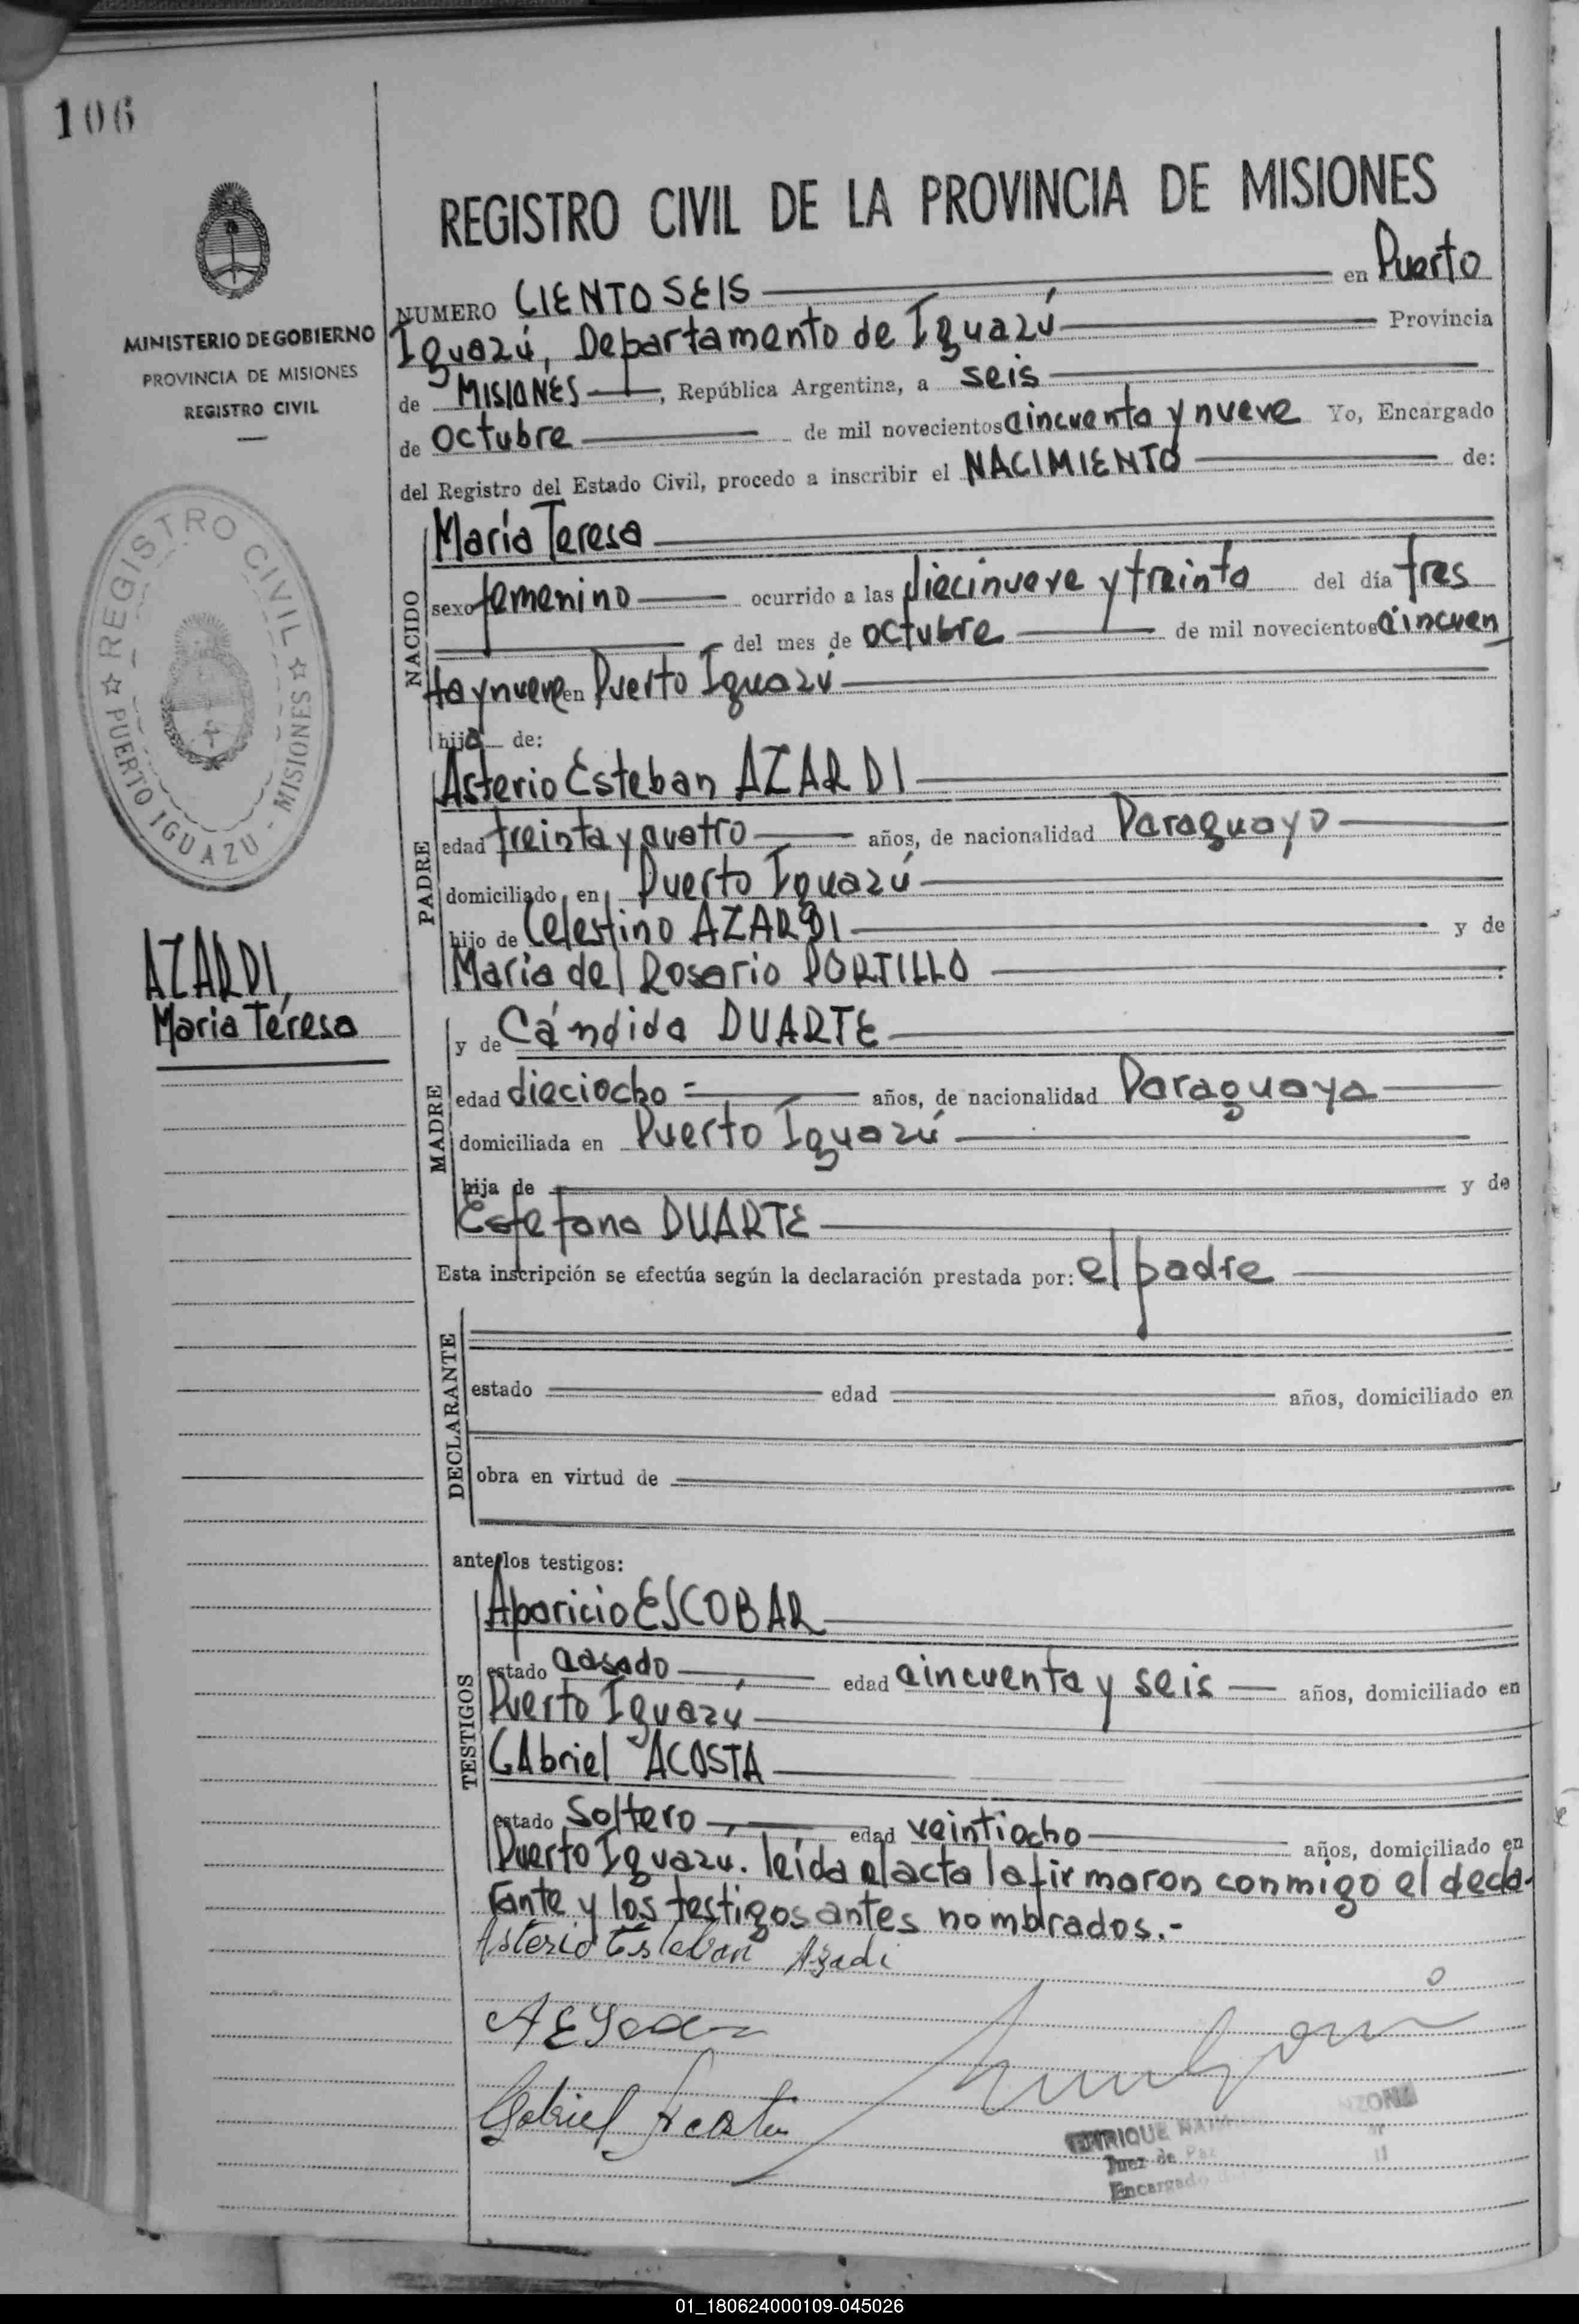 106
MINISTERIO DE GOBIERNO
PROVINCIA DE MISIONES
REGISTRO CIVIL
REGISTRO CIVIL
PUERTO IGUAZU - MISIONES
AZARDI,
Maria Teresa
REGISTRO CIVIL DE LA PROVINCIA DE MISIONES
NUMERO CIENTO SEIS en Puerto
Iguazú, Departamento de Iguazú Provincia
de MISIONES, República Argentina, a seis
de octubre de mil novecientos cincuenta y nueve Yo, Encargado
del Registro del Estado Civil, procedo a inscribir el NACIMIENTO de:
NACIDO
María Teresa
sexo femenino ocurrido a las diecinueve y treinta del día tres
del mes de octubre de mil novecientos cincuen
ta y nueve en Puerto Iguazú
hija de:
PADRE
Asterio Esteban AZARDI
edad treinta y cuatro años, de nacionalidad Paraguayo
domiciliado en Puerto Iguazú
hijo de Celestino AZARDI y de
María del Rosario PORTILLO
MADRE
y de Cándida DUARTE
edad dieciocho = años, de nacionalidad Paraguaya
domiciliada en Puerto Iguazú
hija de y de
Estefana DUARTE
Esta inscripción se efectúa según la declaración prestada por: el padre
DECLARANTE
estado edad años, domiciliado en
obra en virtud de
ante los testigos:
TESTIGOS
Aparicio ESCOBAR
estado casado edad cincuenta y seis años, domiciliado en
Puerto Iguazú
GAbriel ACOSTA
estado soltero, edad veintiocho años, domiciliado en
Puerto Iguazú. leída el acta la firmaron conmigo el decla-
rante y los testigos antes nombrados.-
Asterio Esteban Azadi
Gabriel Acosta
ENRIQUE
Juez de Paz
Encargado
01_180624000109-045026